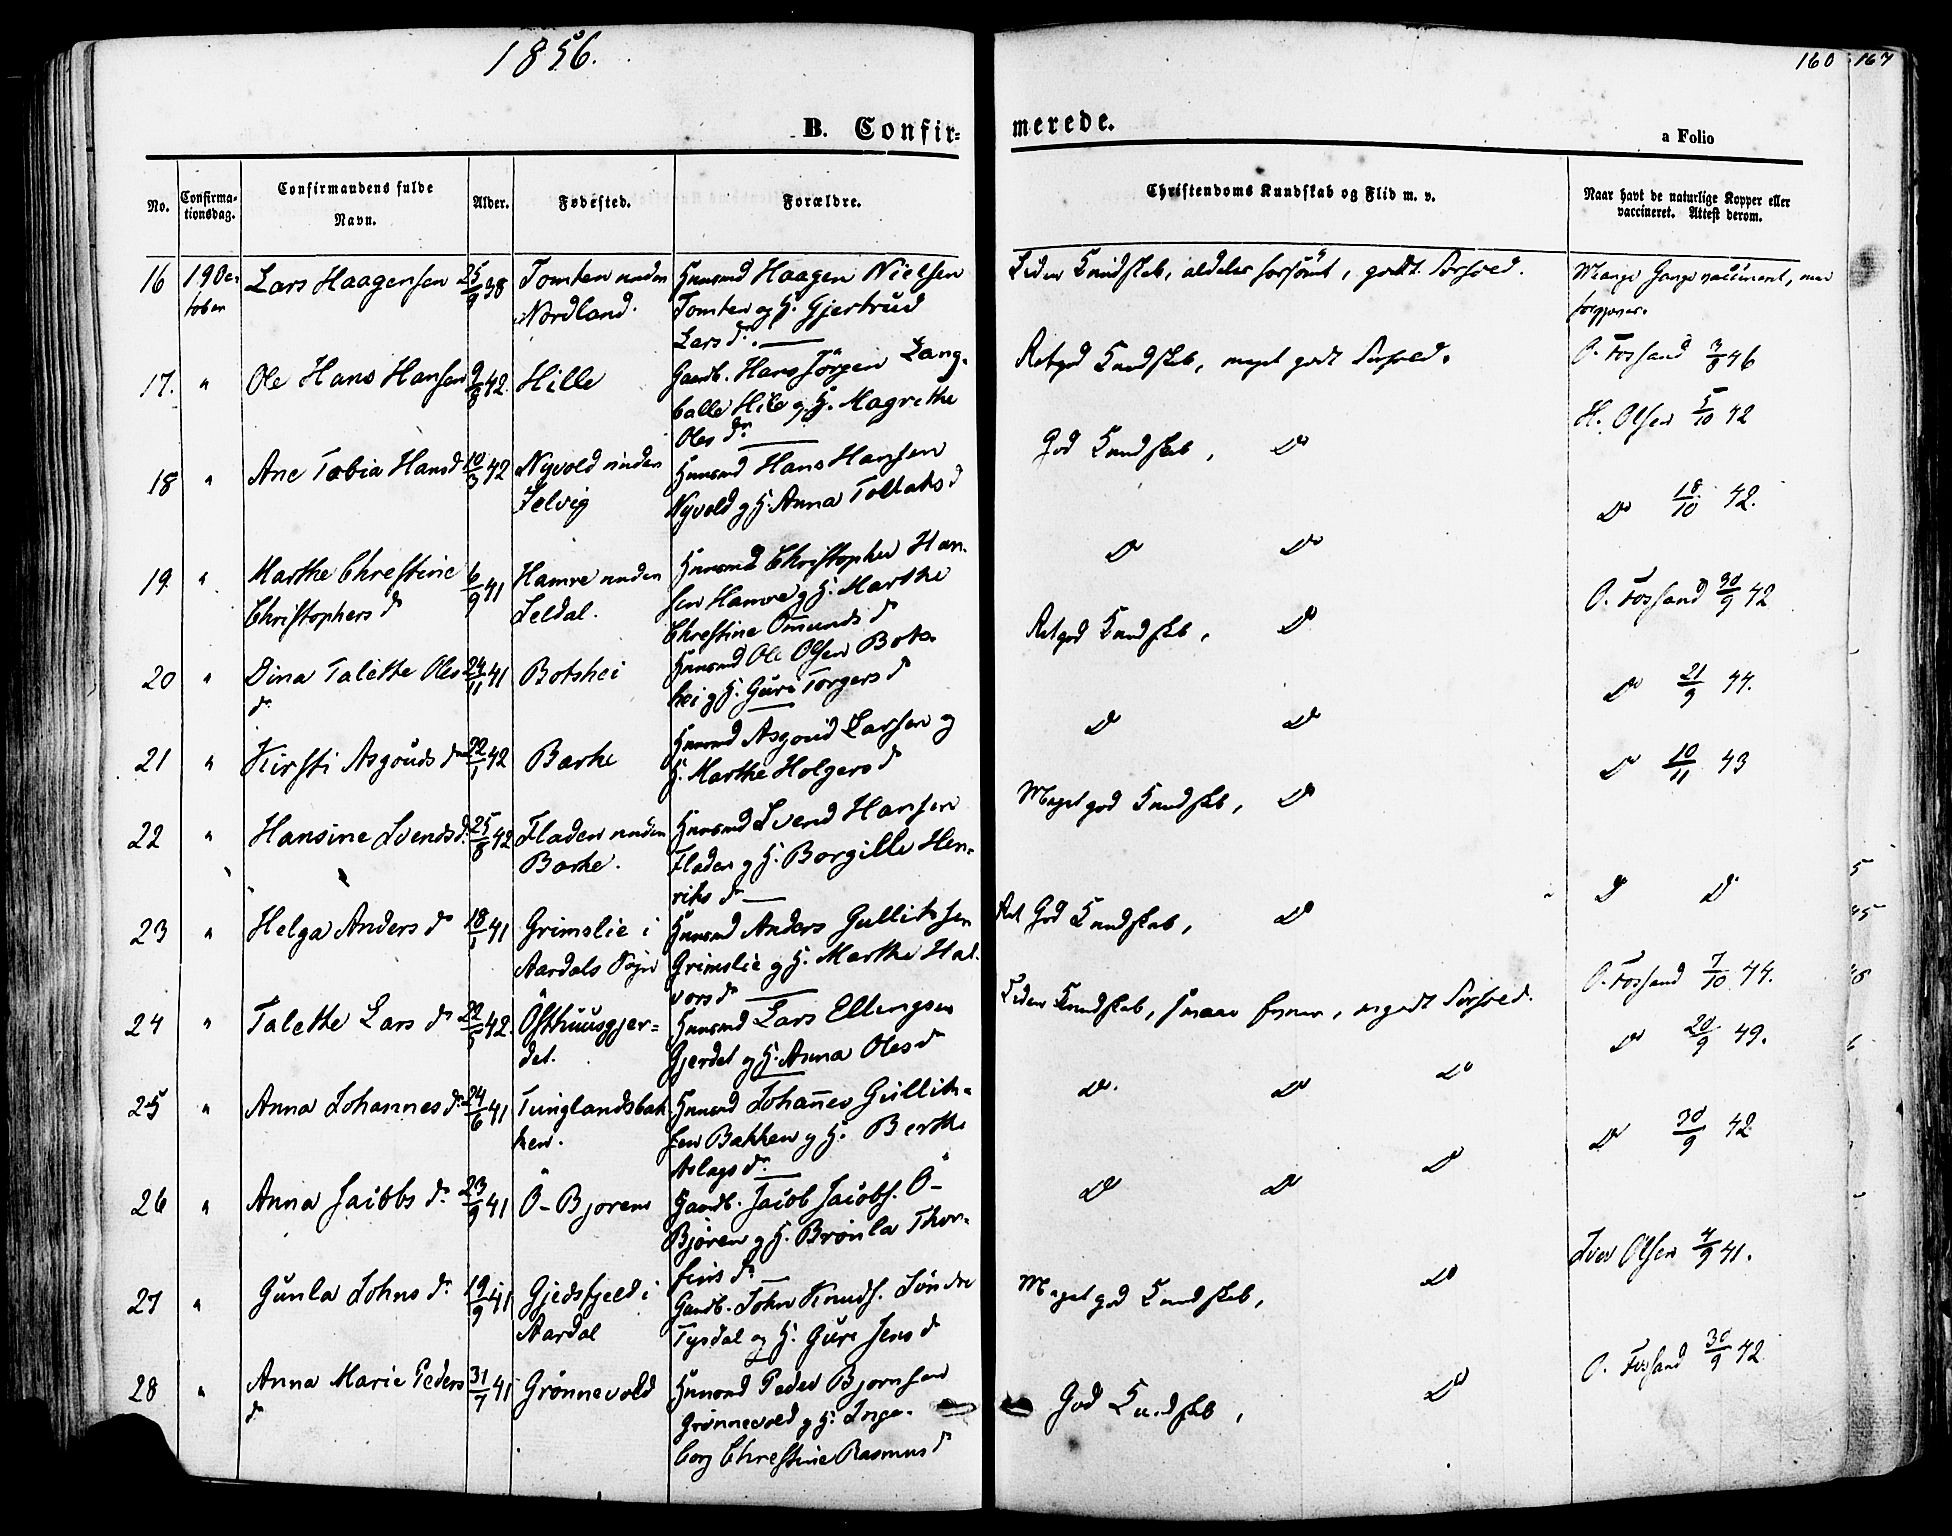 1856.
160 167
B. Confir-
merede.
a Folio
No.
Confirma-
tionsdag.
Confirmandens fulde
Navn.
Alder.
Fødested.
Forældre.
Christendoms Kundskab og Flid m. v.
Naar havt de naturlige Kopper eller
vaccineret. Attest derom.
16 19 Oc- Lars Haagensen 25/9 38 Tomten under Huusmd Haagen Nielsen Liden Kundskab, aldeles forsömt, godt Forhold. Mange Gange vaccineret, men
tober Nordland. Tomten og H. Gjertrud forgjæves.
Lars dr.
17. " Ole Hans Hansen 9/3 42. Hille Gaardb. Hans Jörgen Lang- Retgod Kundskab, meget godt Forhold. O. Fossand 3/8 46
balle Hile og H. Magrethe H. Olsen 5/10 42
Oles dr.
18 " Ane Tobia Hansd 10/3 42 Nyvold under Huusmd Hans Hansen God Kundskab, Do
Selvig Nyvold og H. Anna Tollaks d Do 18/10 42.
19 " Marthe Chrestine 6/9 41 Hamre under Huusmd Christopher Han- Do Do
Christophers dr Seldal. sen Hamre og H. Marthe O. Fossand 30/9 42
Chrestine Omunds d
20 " Dina Talette Oles 24/11 41 Botshei Huusmd Ole Olsen Bots- Retgod Kundskab, Do
dr. hei og H. Guri Torgers d Do 21/9 44.
21 " Kirsti Asgouds dr 22/1 42 Barke Huusmd Asgoud Larsen og Do Do
H. Marthe Holgers d Do 10/11 43
22 " Hansine Svends d. 25/8 42 Fladen under Huusmd Svend Hansen Meget god Kundskab, Do
Barke. Fladen og H. Borgille Hen-
riks dr Do Do
23 " Helga Anders dr 18/1 41 Grimslie i Huusmd Anders Gullichsen Ret God Kundskab, Do
Aardals Sogn Grimslie og H. Marthe Hal- O. Fossand 7/10 44.
vors dr
24 " Talette Lars dr 42. Østhuusgjer- Huusmd Lars Ellingsen Liden Kundskab, smaae Evner, og godt Forhold.
det. Gjerdet og H. Anna Oles dr Do 20/9 49.
25 " Anna Johannes dr. 24/6 41 Tunglandsbak- Huusmd Johannes Gullik- Do. Do Do
ken. sen Bakken og H. Berthe Do 30/9 42
Aslags dr.
26 " Anna Jacobs dr. 23/9 41 Ö-Bjoren Gaardb. Jacob Jacobs. Ö- Do Do Do
Bjøren og H. Brønla Thor-
fins dr Iver Olsen 4/9 41.
27 " Gunla Johns dr. 19/9 41 Gjedsfjeld i Gaardb. John Knuds. Søndre Meget god Kundskab, Do
Aardal Tysdal og H. Guri Jens d
28 " Anna Marie Peders 31/7 41 Grønnevold Huusmd Peder Bjørnsen God Kundskab, Do O. Fossand 30/9 42
dr Grønnevold og H. Inge-
borg Chrestine Rasmus d